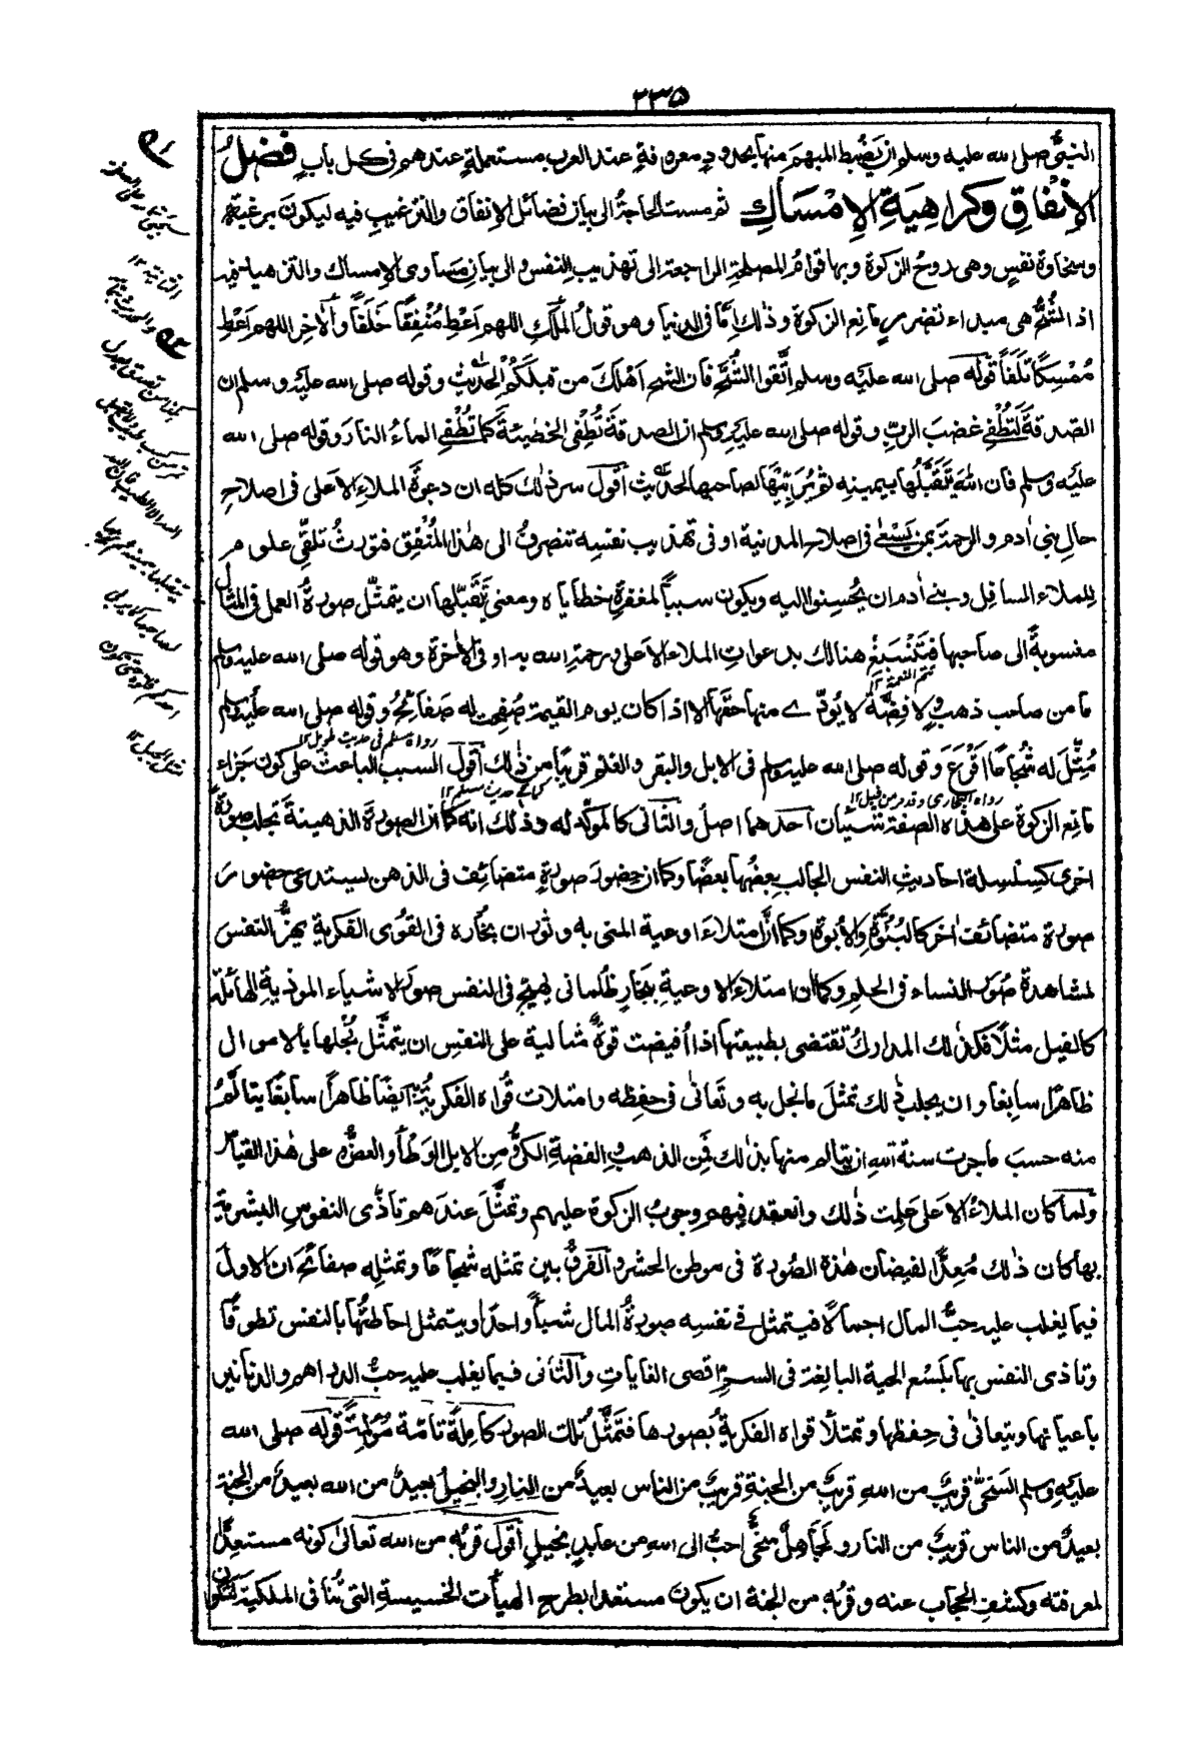 ۲۳۵
النبيُّ صلى الله عليه وسلم ان يَضبُط المبهمَ منها بحدودٍ معروفةٍ عند العرب مستعملةٍ عندهم فى كل بابٍ فضلُ
الإنفاقِ وكراهيةِ الإمساكِ ثم مست الحاجةُ الى بيان فضائل الإنفاق والترغيبِ فيه ليكونَ برغبةٍ
وسخاوةِ نفسٍ وهى روحُ الزكوة وبها قوامُ المصلحةِ الراجعةِ الى تهذيب النفس والى بيانِ مساوى الإمساك والتزهيدِ فيه
اذ الشُّحُّ هى مبداء تضررِ مانِع الزكوة وذٰلك اِمَّا فى الدنيا وهو قولُ المَلَكِ اللهم اَعْطِ مُنْفِقًا خَلَفًا وٱلاخِر اللهم اَعْطِ
مُمْسِكًا تَلَفًا قوله صلى الله عليه وسلم اتَّقوا الشُّحَّ فان الشح اَهلَكَ من قبلَكم الحديث وقوله صلى الله عليه وسلم ان
الصدقةَ لَتُطْفِئ غضبَ الربِّ وقوله صلى الله عليه وسلم ان الصدقةَ تُطفِى الخطيئةَ كما تُطْفِى الماءُ النارَ وقوله صلى الله
عليه وسلم فان اللهَ يَتَقَبَّلُها بيمينه ثم يُرَبِّيْها لصاحبها الحديث أقول سر ذٰلك كله ان دعوةَ الملاءِ الاعلى فى اصلاحِ
حالِ بنى اٰدم والرحمةَ بمن يَسْعٰى فى اصلاح المدنية او فى تهذيب نفسِه تنصرفُ الى هٰذا المُنْفِق فتورثُ تلقِّىَ علوم
للملاء السافِل وبنى اٰدم ان يُحسِنوا اليه ويكون سببًا لمغفرةِ خطاياه ومعنى يَتَقَبَّلها ان يتمثّل صورةُ العمل فى المثال
منسوبةً الى صاحبها فتَنْسَبِغُ هنالك بدعواتِ الملاء الاعلى ورحمةِ الله به او فى الاٰخرة وهو قوله صلى الله عليه وسلم
ما من صاحب ذهبٍ ولا فضّةٍ لا يُودّى منها حقَّها الا اذا كان يوم القيمة صُفِحت له صفائحُ وقوله صلى الله عليه وسلم
رواه مسلم فى حديث طويل ١٢
مُثِّلَ له شُجاعًا اَقْرَعَ وقوله صلى الله عليه وسلم فى الابل والبقر والغنم قريبًا من ذٰلك أقول السبب الباعث على كون جزاء
مانِع الزكوة على هذه الصفة شيئان احدهما اصل والثانى كالموكِّد له وذلك انه كما ان الصورةَ الذهنيةَ تجلب صورةً
اخرى كسلسلة احاديثِ النفس الجالبِ بعضُها بعضًا وكما ان حضورَ صورةِ متضائفٍ فى الذهن يستدعى حضور
صورة متضائف اٰخر كالبُنُوَّةِ والأبوة وكما انَّ امتلاءَ اوعية المنى به وثوران بخاره فى القُوَى الفكرية يهزُّ النفسَ
لمشاهدة صُوَر النساء فى الحلم وكما ان امتلاء الاوعية ببخارٍ ظُلمانى يهيّج فى النفس صورَ الاشياء الموذيةِ الهائلة
كالفيل مثلًا فكذٰلك المداركُ تقتضى بطبيعتها اذا اُفيضت قوةٌ مثالية على النفس ان يتمثَّل بُخلها بالاموال
ظاهرًا سابغًا وان يجلب ذٰلك تمثلَ مابخل به وتَعانٰى فى حفظه وامتلات قُواه الفكريةُ به ايضًا ظاهرًا سابغًا يتالَّمُ
منه حسبَ ماجرت سنة الله ان يتالم منها بذٰلك فمن الذهب والفضةِ الكىُّ ومن الابل الوَطْأُ والعضُّ وعلى هذا القياس
ولما كان الملاءُ الاعلى عَلِمت ذٰلك وانعقد فيهم وجوبُ الزكوة عليهم وتمثَّلَ عندهم تأذِّى النفوسِ البشرية
بها كان ذٰلك مُعِدًّا لفيضان هٰذه الصُورة فى موطن الحشر والفرقُ بين تمثله شجاعًا وتمثلِه صفائحَ ان الاولَ
فيما يغلب عليه حبُّ المال اجمالًا فيتمثل فى نفسه صورةُ المال شيئًا واحدًا ويتمثل احاطتُها بالنفس تطوقًا
وتاذى النفس بها بلَسْع الحية البالغة فى السمِّ اقصى الغايات والثانى فيما يغلب عليه حبُّ الدراهم والدنانير
باعيانها ويتعانٰى فى حِفظها وتمتلأ قواه الفكرية بصورها فتَمَثَّلُ تلك الصور كامِلةً تامّة مُؤلمةً قوله صلى الله
عليه وسلم السَّخىُّ قريبٌ من الله قريبٌ من الجنةِ قريبٌ من الناس بعيدٌ من النار والبخيلُ بعيدٌ من الله بعيدٌ من الجنة
بعيدٌ من الناس قريبٌ من النار ولجَاهِلٌ سخىٌّ احبُّ الى الله من عابدٍ بخيلٍ أقول قربُه من الله تعالى كونه مستعدًّا
لمعرفته وكشفِ الحجاب عنه وقربُه من الجنة ان يكون مستعدا بطرح الهيأت الخسيسةِ التى تُنافى الملكيةَ لتكون